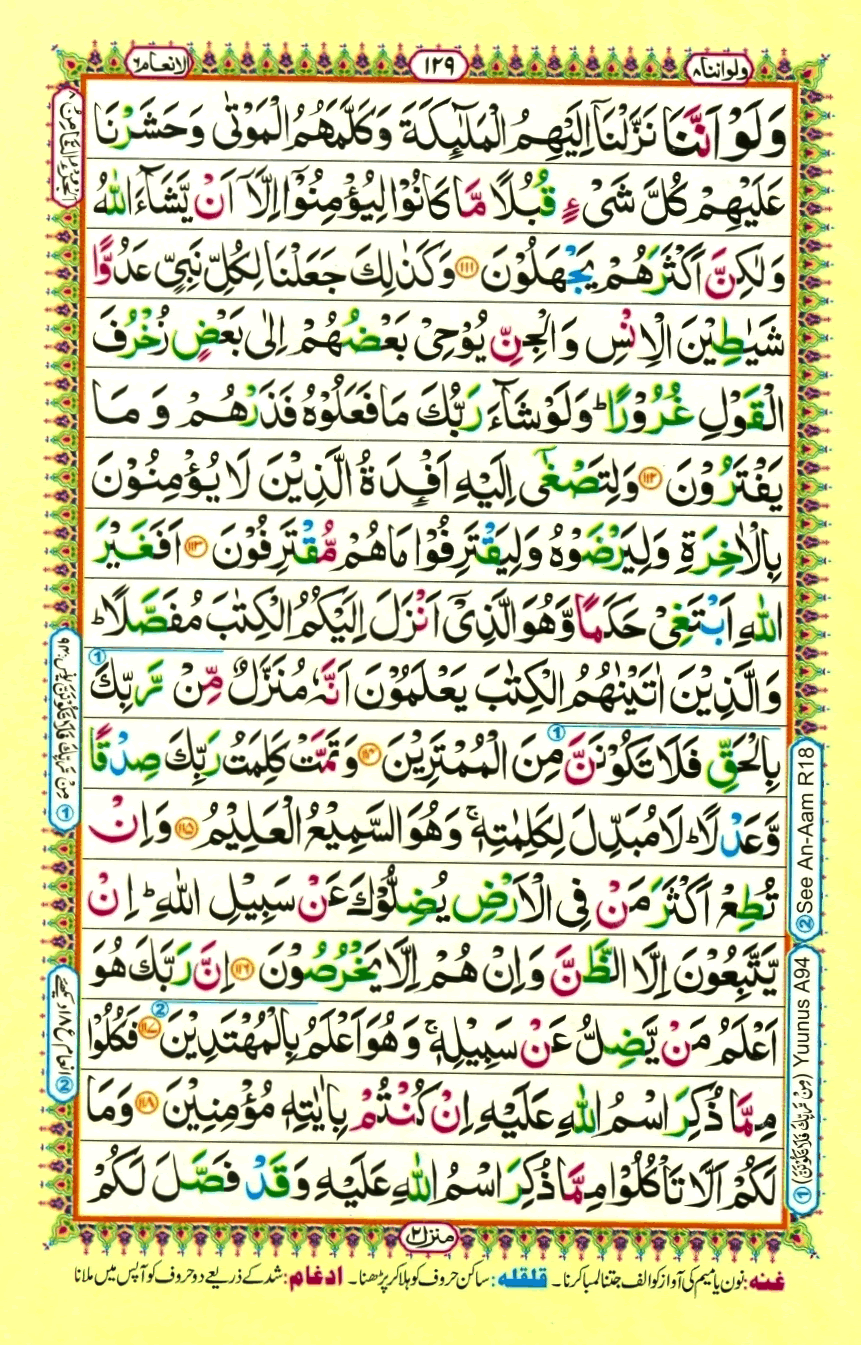 ولواننا۸
۱۲۹
لانعام۶
وَلَوْ اَنَّنَا نَزَّلْنَاۤ اِلَيْهِمُ الْمَلٰٓئِكَةَ وَكَلَّمَهُمُ الْمَوْتٰى وَحَشَرْنَا
عَلَيْهِمْ كُلَّ شَىْءٍ قُبُلًا مَّا كَانُوْا لِيُؤْمِنُوْۤا اِلَّاۤ اَنْ يَّشَآءَ اللّٰهُ
وَلٰكِنَّ اَكْثَرَهُمْ يَجْهَلُوْنَ ۝۱۱۱ وَكَذٰلِكَ جَعَلْنَا لِكُلِّ نَبِىٍّ عَدُوًّا
شَيٰطِيْنَ الْاِنْسِ وَالْجِنِّ يُوْحِىْ بَعْضُهُمْ اِلٰى بَعْضٍ زُخْرُفَ
الْقَوْلِ غُرُوْرًا ؕ وَلَوْ شَآءَ رَبُّكَ مَا فَعَلُوْهُ فَذَرْهُمْ وَمَا
يَفْتَرُوْنَ ۝۱۱۲ وَلِتَصْغٰۤى اِلَيْهِ اَفْـِٕدَةُ الَّذِيْنَ لَا يُؤْمِنُوْنَ
بِالْاٰخِرَةِ وَلِيَرْضَوْهُ وَلِيَقْتَرِفُوْا مَا هُمْ مُّقْتَرِفُوْنَ ۝۱۱۳ اَفَغَيْرَ
اللّٰهِ اَبْتَغِىْ حَكَمًا وَّهُوَ الَّذِىْۤ اَنْزَلَ اِلَيْكُمُ الْكِتٰبَ مُفَصَّلًا ؕ
وَالَّذِيْنَ اٰتَيْنٰهُمُ الْكِتٰبَ يَعْلَمُوْنَ اَنَّهٗ مُنَزَّلٌ مِّنْ رَّبِّكَ
بِالْحَقِّ فَلَا تَكُوْنَنَّ مِنَ الْمُمْتَرِيْنَ ۝۱۱۴ وَتَمَّتْ كَلِمَتُ رَبِّكَ صِدْقًا
وَّعَدْلًا ؕ لَا مُبَدِّلَ لِكَلِمٰتِهٖ ۚ وَهُوَ السَّمِيْعُ الْعَلِيْمُ ۝۱۱۵ وَاِنْ
تُطِعْ اَكْثَرَ مَنْ فِى الْاَرْضِ يُضِلُّوْكَ عَنْ سَبِيْلِ اللّٰهِ ؕ اِنْ
يَّتَّبِعُوْنَ اِلَّا الظَّنَّ وَاِنْ هُمْ اِلَّا يَخْرُصُوْنَ ۝۱۱۶ اِنَّ رَبَّكَ هُوَ
اَعْلَمُ مَنْ يَّضِلُّ عَنْ سَبِيْلِهٖ ۚ وَهُوَ اَعْلَمُ بِالْمُهْتَدِيْنَ ۝۱۱۷ فَكُلُوْا
مِمَّا ذُكِرَ اسْمُ اللّٰهِ عَلَيْهِ اِنْ كُنْتُمْ بِاٰيٰتِهٖ مُؤْمِنِيْنَ ۝۱۱۸ وَمَا
لَكُمْ اَلَّا تَاْكُلُوْا مِمَّا ذُكِرَ اسْمُ اللّٰهِ عَلَيْهِ وَقَدْ فَصَّلَ لَكُمْ
② See An-Aam R18
① (مِنْ رَّبِّكَ فَلَا تَكُوْنَنَّ) Yuunus A94
الْجُزْءُ الثَّامِنُ ۸
① مِنْ رَّبِّكَ فَلَا تَكُوْنَنَّ یونس ۹۴
② انعام ع ۱۸ دیکھئے
منزل۲
غنه: نون یا میم کی آواز کو الف جتنا لمبا کرنا۔ قلقله: ساکن حروف کو ہلا کر پڑھنا۔ ادغام: شد کے ذریعے دو حروف کو آپس میں ملانا